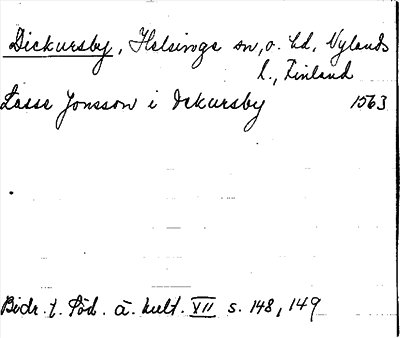 Dickursby, Helsinge sn, o. hd, Nylands
l., Finland
Lasse Jonsson i Dekursby 1563
Bidr. t. Söd. Ö. kult. VII s. 148, 149